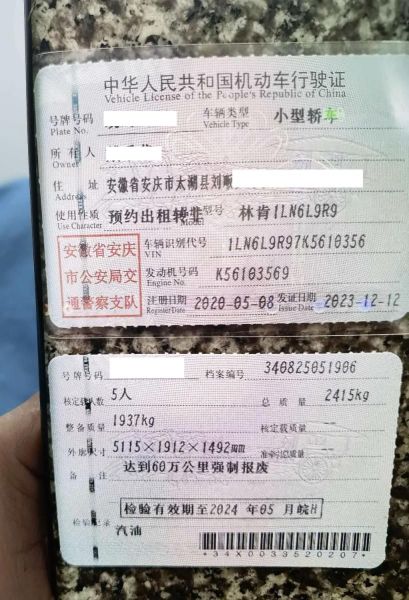 中华人民共和国机动车行驶证
Vehicle License of the People's Republic of China
号牌号码 车辆类型 小型轿车
Plate No. Vehicle Type
所有人
Owner
住 址 安徽省安庆市太湖县刘
Address
使用性质 预约出租转非 型号 林肯1LN6L9R9
Use Character Model
安徽省安庆市公安局交通警察支队
车辆识别代号 1LN6L9R97K5610356
VIN
发动机号码 K56103569
注册日期 2020-05-08 发证日期 2023-12-12
Register Date Issue Date
号牌号码 档案编号 340825051906
核定载人数 5人 总质量 2415kg
整备质量 1937kg 核定载质量 --
外廓尺寸 5115×1912×1492 准牵引总质量 --
备 注 达到60万公里强制报废
检验有效期至2024年05月皖H
检验记录 汽油
*34X0033520207*